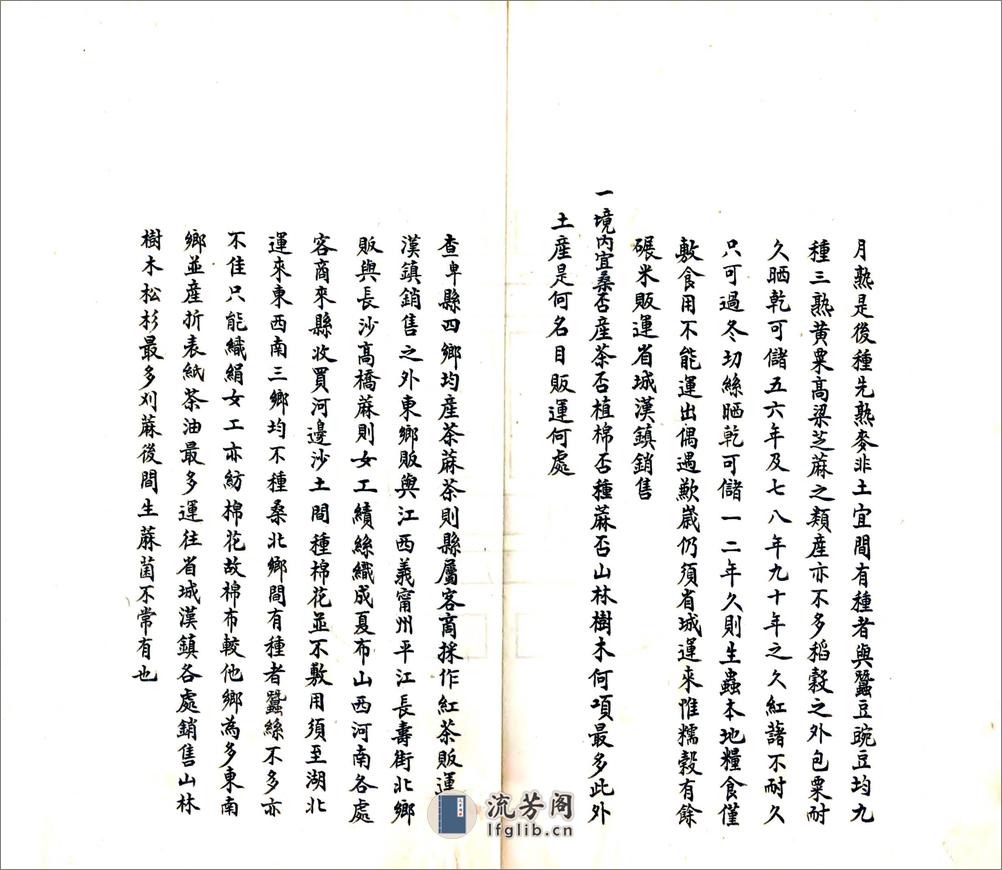 月熟是後種先熟麥非土宜間有種者與蠶豆豌豆均九
種三熟黃粟高粱芝蔴之類產亦不多稻穀之外包粟耐
久晒乾可儲五六年及七八年九十年之久紅藷不耐久
只可過冬切絲晒乾可儲一二年久則生蟲本地糧食僅
敷食用不能運出偶遇歉嵗仍須省城運來惟糯穀有餘
碾米販運省城漢鎮銷售
一境內宜桑否產茶否植棉否種蔴否山林樹木何項最多此外
土產是何名目販運何處
查卑縣四鄉均產茶蔴茶則縣屬客商採作紅茶販運
漢鎮銷售之外東鄉販與江西義甯州平江長壽街北鄉
販與長沙高橋蔴則女工績絲織成夏布山西河南各處
客商來縣收買河邊沙土間種棉花並不敷用須至湖北
運來東西南三鄉均不種桑北鄉間有種者蠶絲不多亦
不佳只能織絹女工亦紡棉花故棉布較他鄉為多東南
鄉並產折表紙茶油最多運往省城漢鎮各處銷售山林
樹木松杉最多刈蔴後間生蔴菌不常有也
流芳阁
lfglib.cn